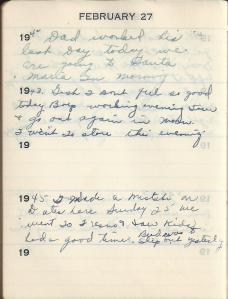 FEBRUARY 27
19 44 Dad worked his
last Day today we
are going to Santa
Maria in morning
1943. Gosh I don't feel so good
today Boys working evening Sun
& go out again in morn
I went to store this evening
19
1945 I Made a Mistake on
Dates here Sunday 25 we
went to Fresno & saw Kids
had a good time.
slept out yesterday
19